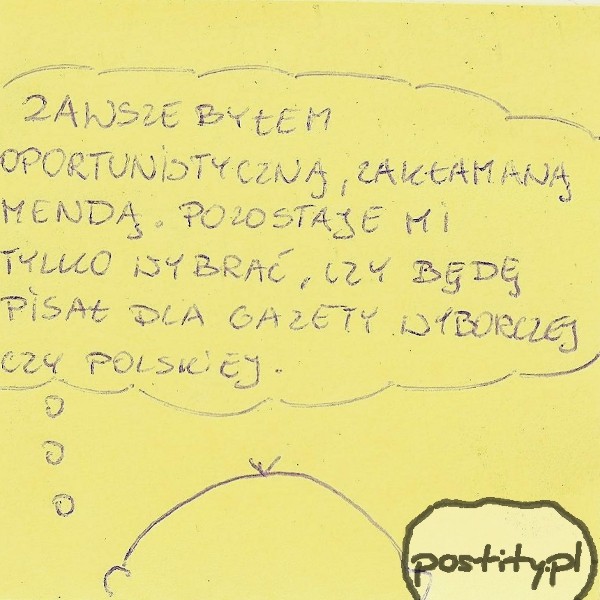 ZAWSZE BYŁEM
OPORTUNISTYCZNĄ, ZAKŁAMANĄ
MENDĄ. POZOSTAJE MI
TYLKO WYBRAĆ, CZY BĘDĘ
PISAŁ DLA GAZETY WYBORCZEJ
CZY POLSKIEJ.
postity.pl